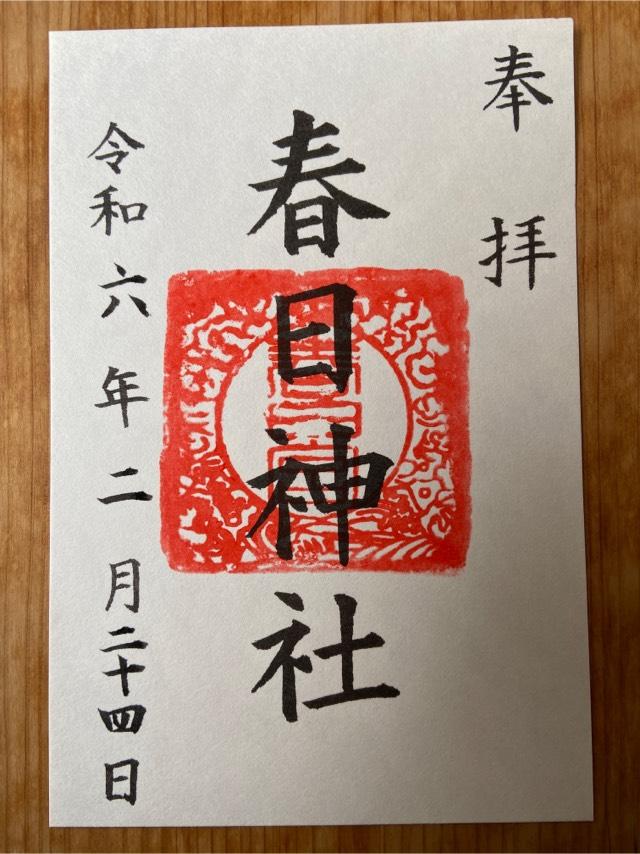 奉拝
春日神社
令和六年二月二十四日